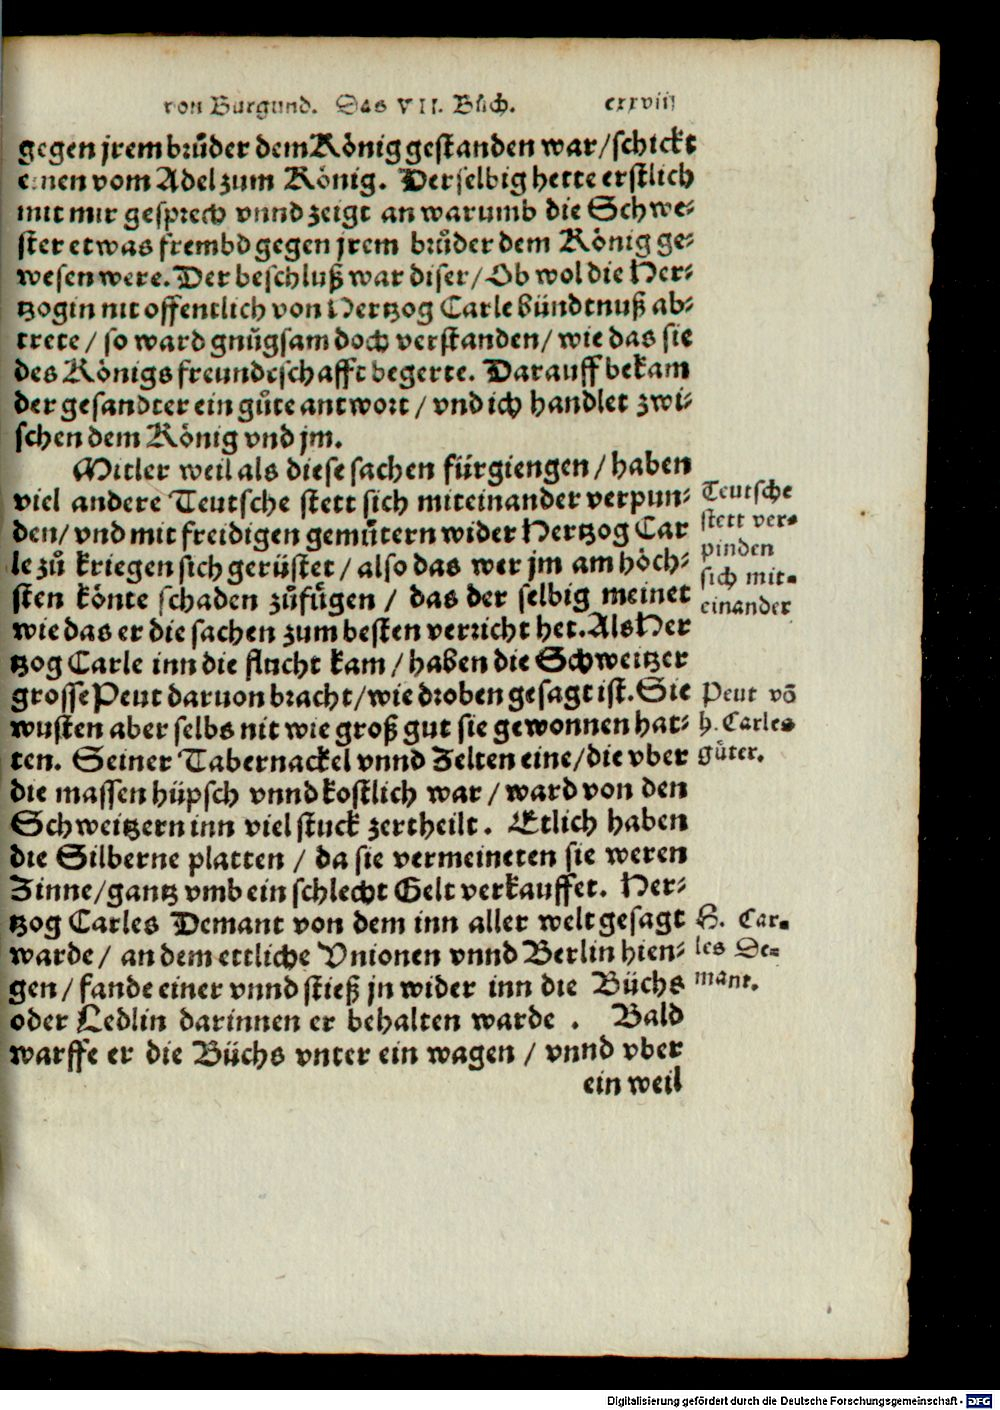 von Burgund. Das VII. Bůch. cxxviij
gegen jrem brůder dem König gestanden war/schickt
einen vom Adel zum König. Derselbig hette erstlich
mit mir gesprech vnnd zeigt an warumb die Schwe⸗
ster etwas frembd gegen jrem brůder dem König ge⸗
wesen were. Der beschluß war diser/Ob wol die Her⸗
tzogin nit offentlich von Hertzog Carle bündtnuß ab⸗
trete / so ward gnůgsam doch verstanden/ wie das sie
des Königs freundtschafft begerte. Darauff bekam
der gesandter ein gůte antwort / vnd ich handlet zwi⸗
schen dem König vnd jm.
Mitler weil als diese sachen fürgiengen / haben
viel andere Teutsche stett sich miteinander verpun⸗
den/ vnd mit freidigen gemůtern wider Hertzog Car
le zů kriegen sich gerüstet / also das wer jm am höch⸗
sten könte schaden zůfůgen / das der selbig meinet
wie das er die sachen zum besten verricht het. Als Her
tzog Carle inn die flucht kam / haben die Schweitzer
grosse Peut daruon bracht/wie droben gesagt ist. Sie
wusten aber selbs nit wie groß gut sie gewonnen hat⸗
ten. Seiner Tabernackel vnnd Zelten eine/die vber
die massen hüpsch vnnd kostlich war / ward von den
Schweitzern inn viel stuck zertheilt. Etlich haben
die Silberne platten / da sie vermeineten sie weren
Zinne/gantz vmb ein schlecht Gelt verkauffet. Her⸗
tzog Carles Demant von dem inn aller welt gesagt
warde/ an dem ettliche Vnionen vnnd Berlin hien⸗
gen/ fande einer vnnd stieß jn wider inn die Büchs
oder Ledlin darinnen er behalten warde . Bald
warffe er die Büchs vnter ein wagen / vnnd vber
ein weil
Teutsche
stett ver⸗
pinden
sich mit⸗
einander
Peut võ
h. Carles
gůter.
H. Car⸗
les De⸗
mant.
Digitalisierung gefördert durch die Deutsche Forschungsgemeinschaft - DFG